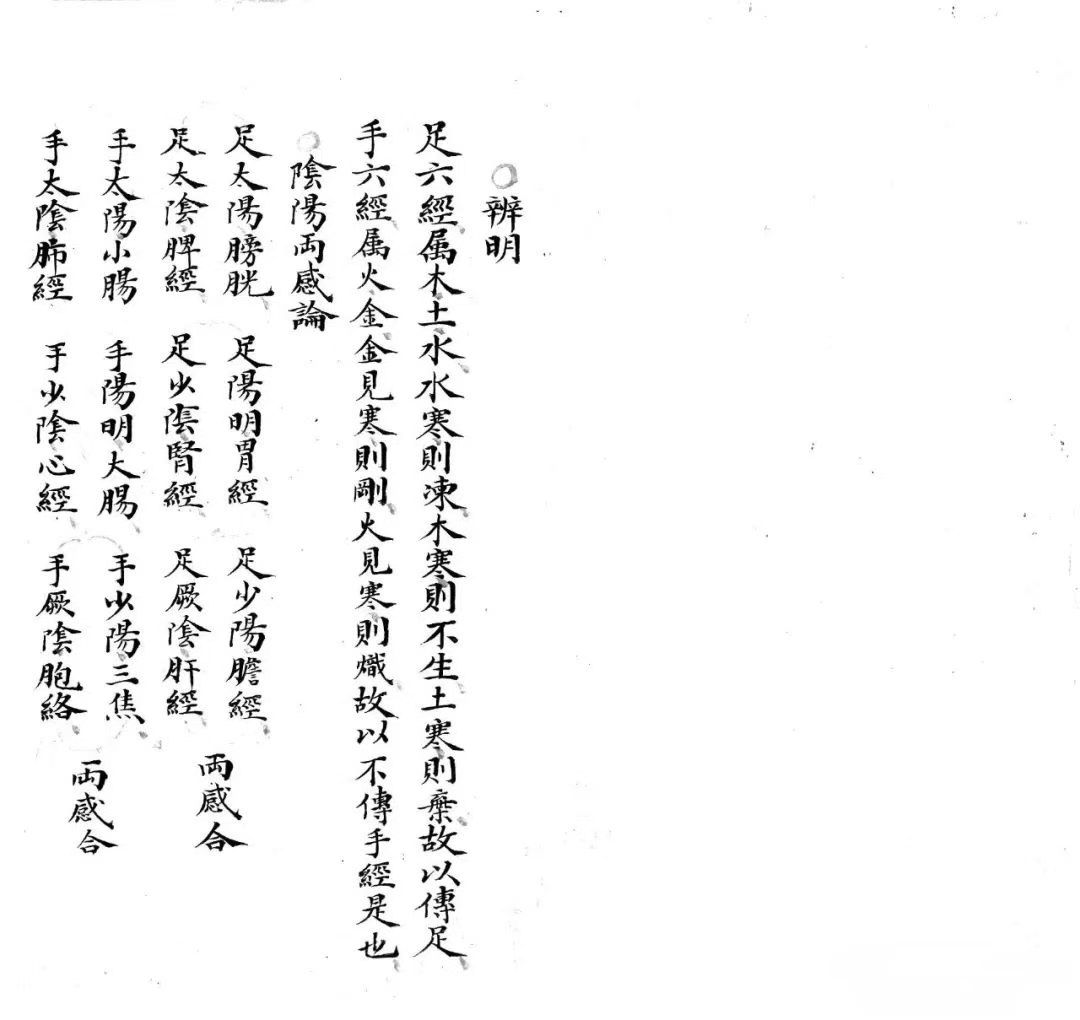 ○辨明
足六經属木土水水寒則凍木寒則不生土寒則棄故以傳足
手六經属火金金見寒則剛火見寒則熾故以不傳手經是也
○陰陽両感論
足太陽膀胱 足陽明胃經 足少陽膽經
足太陰脾經 足少陰腎經 足厥陰肝經
両感合
手太陽小腸 手陽明大腸 手少陽三焦
手太陰肺經 手少陰心經 手厥陰胞絡
両感合